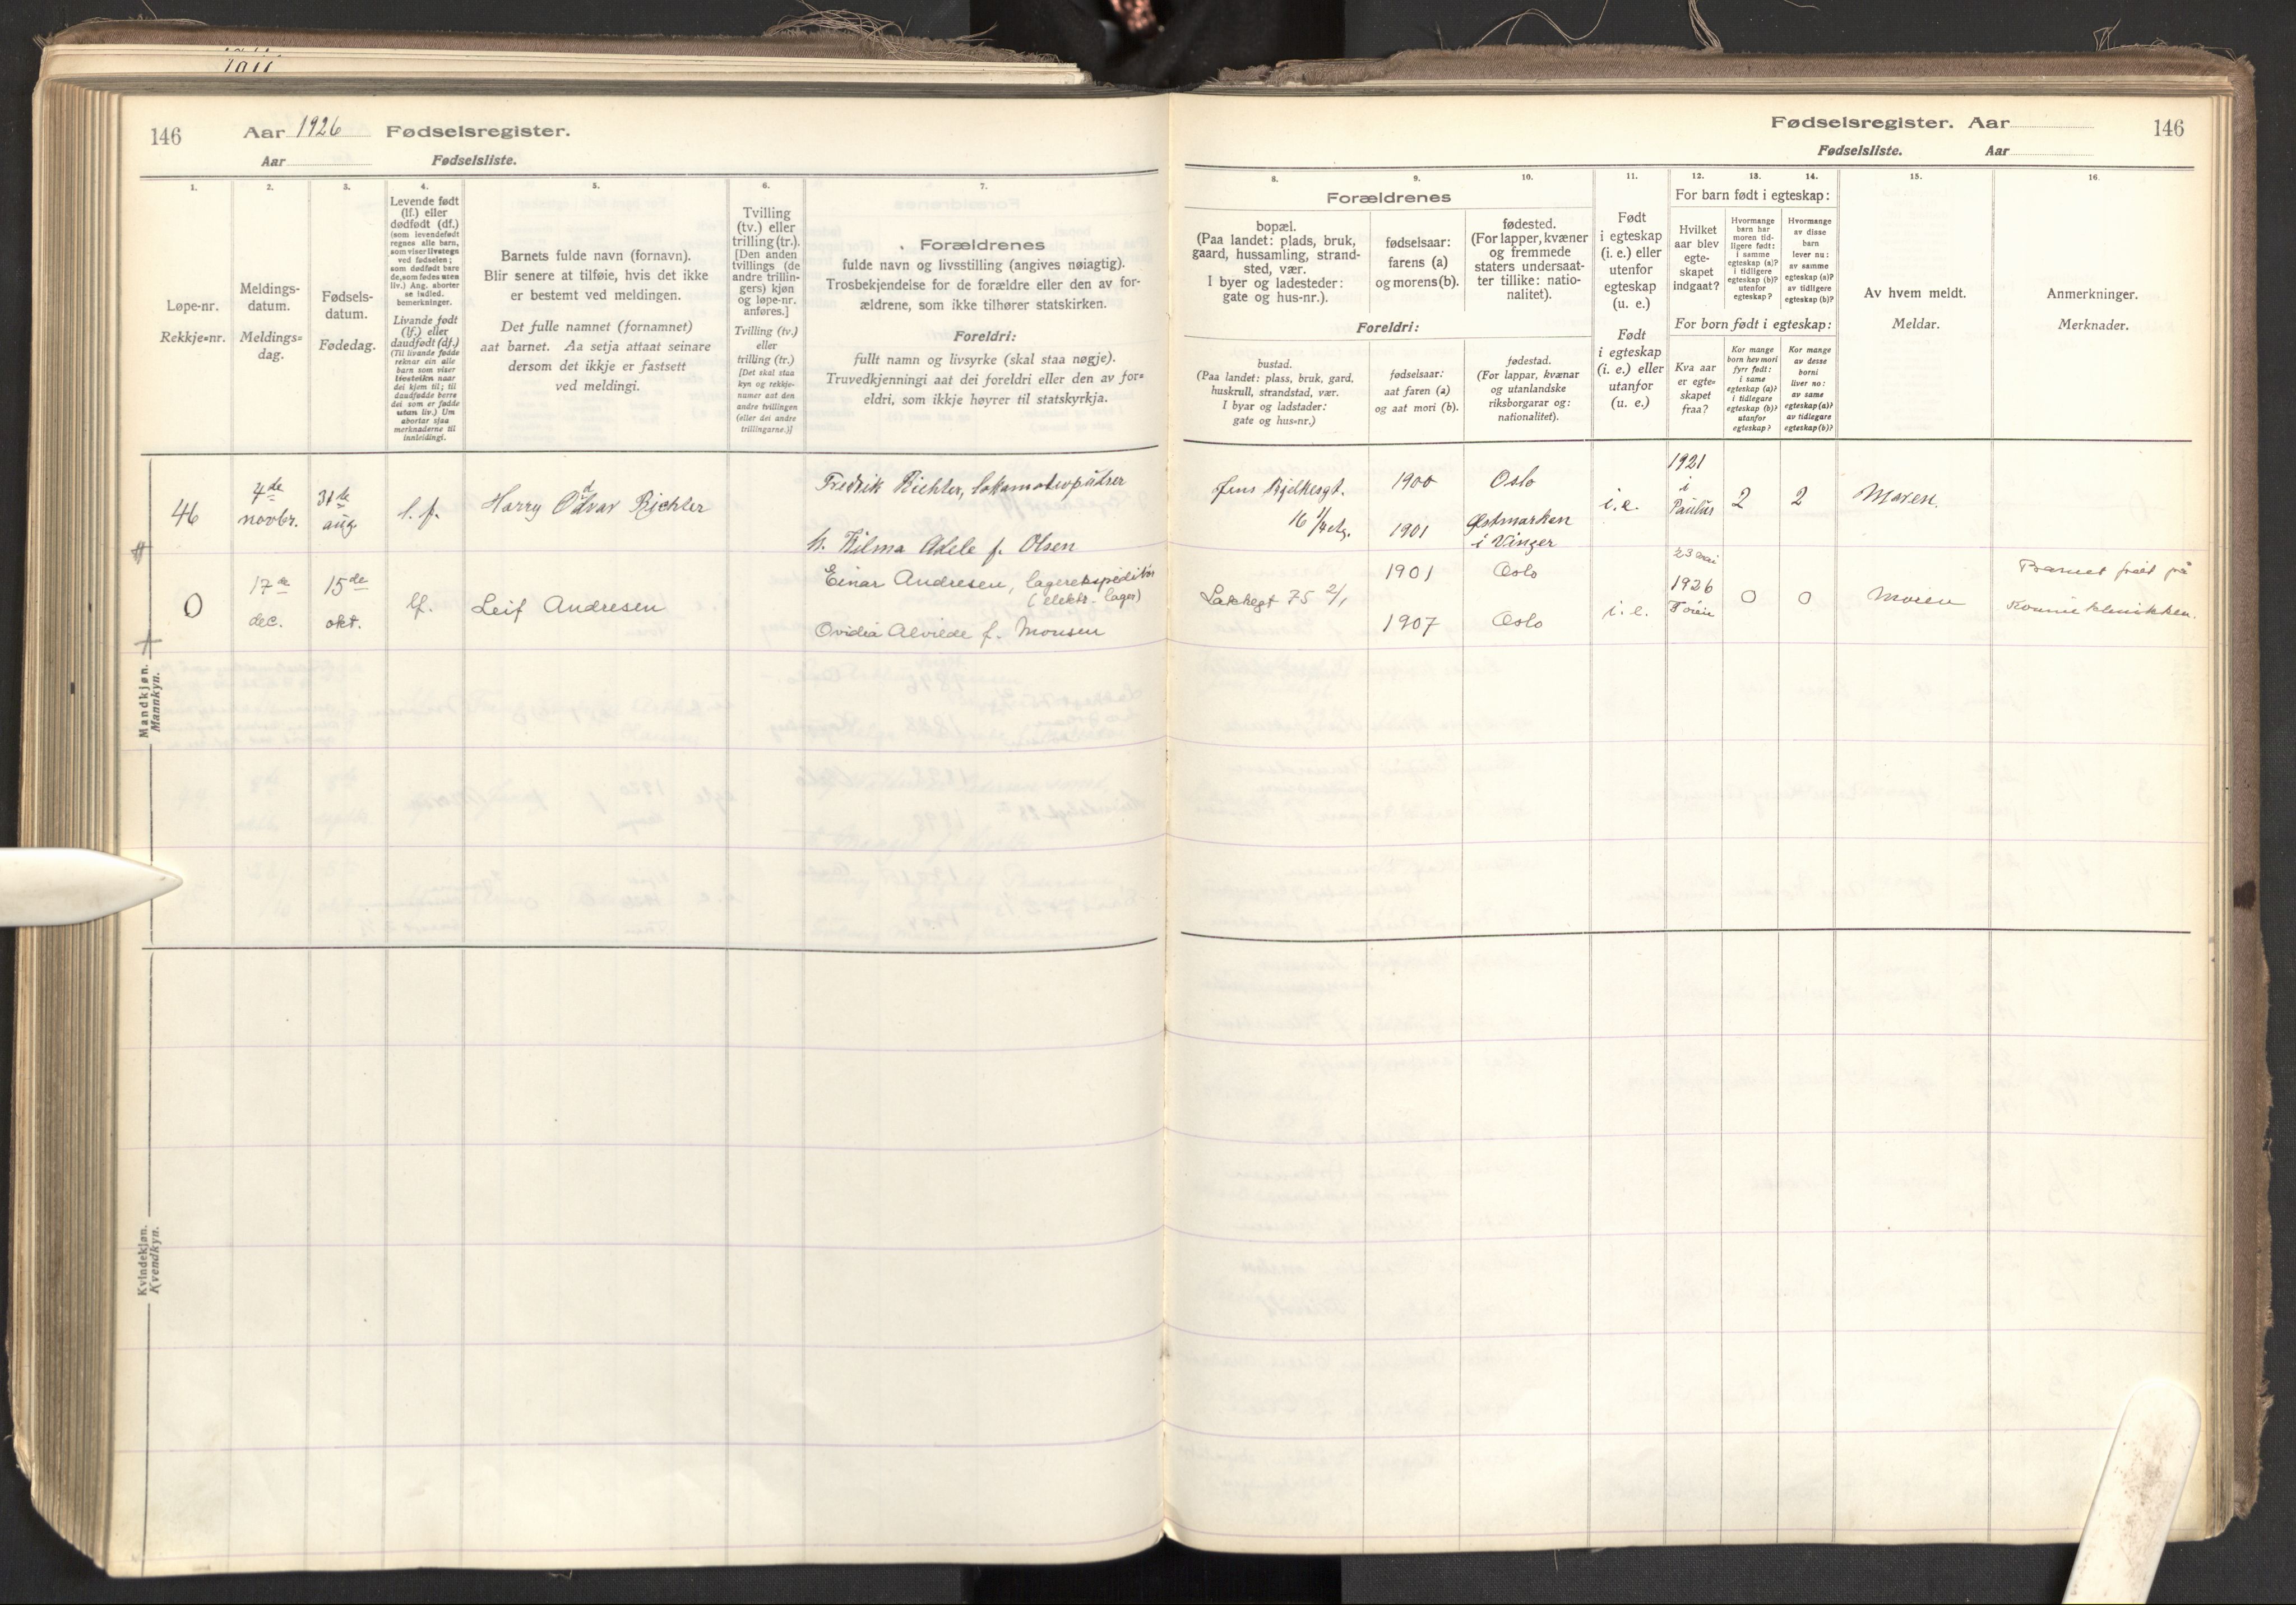 146
Aar 1926 Fødselsregister.
Aar Fødselsliste.
1.
Løpe-nr.
Rekkje=nr.
2.
Meldings-
datum.
Meldings=
dag.
3.
Fødsels-
datum.
Fødedag.
4.
Levende født
(lf.) eller
dødfødt (df.)
(som levendefødt
regnes alle barn,
som viser livstegn
ved fødselen;
som dødfødt bare
de, som fødes uten
liv.) Ang. aborter
se indled.
bemerkninger.
Livande født
(lf.) eller
daudfødt (df.)
(Til livande fødde
reknar ein alle
barn som viser
livsteikn naar
dei kjem til; til
daudfødde berre
dei som er fødde
utan liv.) Um
abortar sjaa
merknaderne til
innleidingi.
5.
Barnets fulde navn (fornavn).
Blir senere at tilføie, hvis det ikke
er bestemt ved meldingen.
Det fulle namnet (fornamnet)
aat barnet. Aa setja attaat seinare
dersom det ikkje er fastsett
ved meldingi.
6.
Tvilling
(tv.) eller
trilling (tr.).
[Den anden
tvillings (de
andre trillin-
gers) kjøn
og løpe-nr.
anføres.]
Tvilling (tv.)
eller
trilling (tr.)
[Det skal staa
kyn og rekkje-
numer aat den
andre tvillingen
(eller dei andre
trillingarne.)]
7.
Forældrenes
fulde navn og livsstilling (angives nøiagtig).
Trosbekjendelse for de forældre eller den av for-
ældrene, som ikke tilhører statskirken.
Foreldri:
fullt namn og livsyrke (skal staa nøgje).
Truvedkjenningi aat dei foreldri eller den av for=
eldri, som ikkje høyrer til statskyrkja.
46
4de
novbr.
31te
aug.
l. f.
Harry Odvar Richter
d
Fredrik Richter, lokomotivpudser
h. Hilma Adele f. Olsen
0
17de
dec.
15de
okt.
lf.
Leif Andresen
Einar Andresen, lagerekspeditør
(elektr. lager)
Ovidia Alvilde f. Monsen
Mandkjøn.
Mannkyn.
Kvindekjøn.
Kvendkyn.
Fødselsregister. Aar
146
Fødselsliste. Aar
8.
Forældrenes
bopæl.
(Paa landet: plads, bruk,
gaard, hussamling, strand-
sted, vær.
I byer og ladesteder:
gate og hus-nr.).
Foreldri:
bustad.
(Paa landet: plass, bruk, gard,
huskrull, strandstad, vær.
I byar og ladstader:
gate og hus=nr.)
9.
fødselsaar:
farens (a)
og morens (b).
fødselsaar:
aat faren (a)
og aat mori (b).
10.
fødested.
(For lapper, kvæner
og fremmede
staters undersaat-
ter tillike: natio-
nalitet).
fødestad.
(For lappar, kvænar
og utanlandske
riksborgarar og:
nationalitet).
11.
Født
i egteskap
(i. e.) eller
utenfor
egteskap
(u. e.)
Født
i egteskap
(i. e.) eller
utanfor
(u. e.)
12.
13.
14.
For barn født i egteskap:
Hvilket
aar blev
egte-
skapet
indgaat?
Hvormange
barn har
moren tid-
ligere født:
i samme
egteskap (a)?
i tidligere
egteskap (b)?
utenfor
egteskap?
Hvormange
av disse
barn
lever nu:
av samme
egteskap (a)?
av tidligere
egteskap (b)?
For born født i egteskap:
Kva aar
er egte=
skapet
fraa?
Kor mange
born hev mori
fyrr født:
i same
egteskap (a)?
i tidlegare
egteskap (b)?
utanfor
egteskap?
Kor mange
av desse
borni
liver no:
av same
egteskap (a)?
av tidlegare
egteskap (b)?
15.
Av hvem meldt.
Meldar.
16.
Anmerkninger.
Merknader.
Jens Bjelkesgt.
16 1/4 etg.
1900
1901
Oslo
Østmarken
i Vinger
i. e.
1921
i
Paulus
2
2
Moren.
Lakkegt 75 2/1
1901
1907
Oslo
Oslo
i. e.
23 mai
1926
Tøien
0
0
Moren
Barnet født på
Kvinneklinikken.